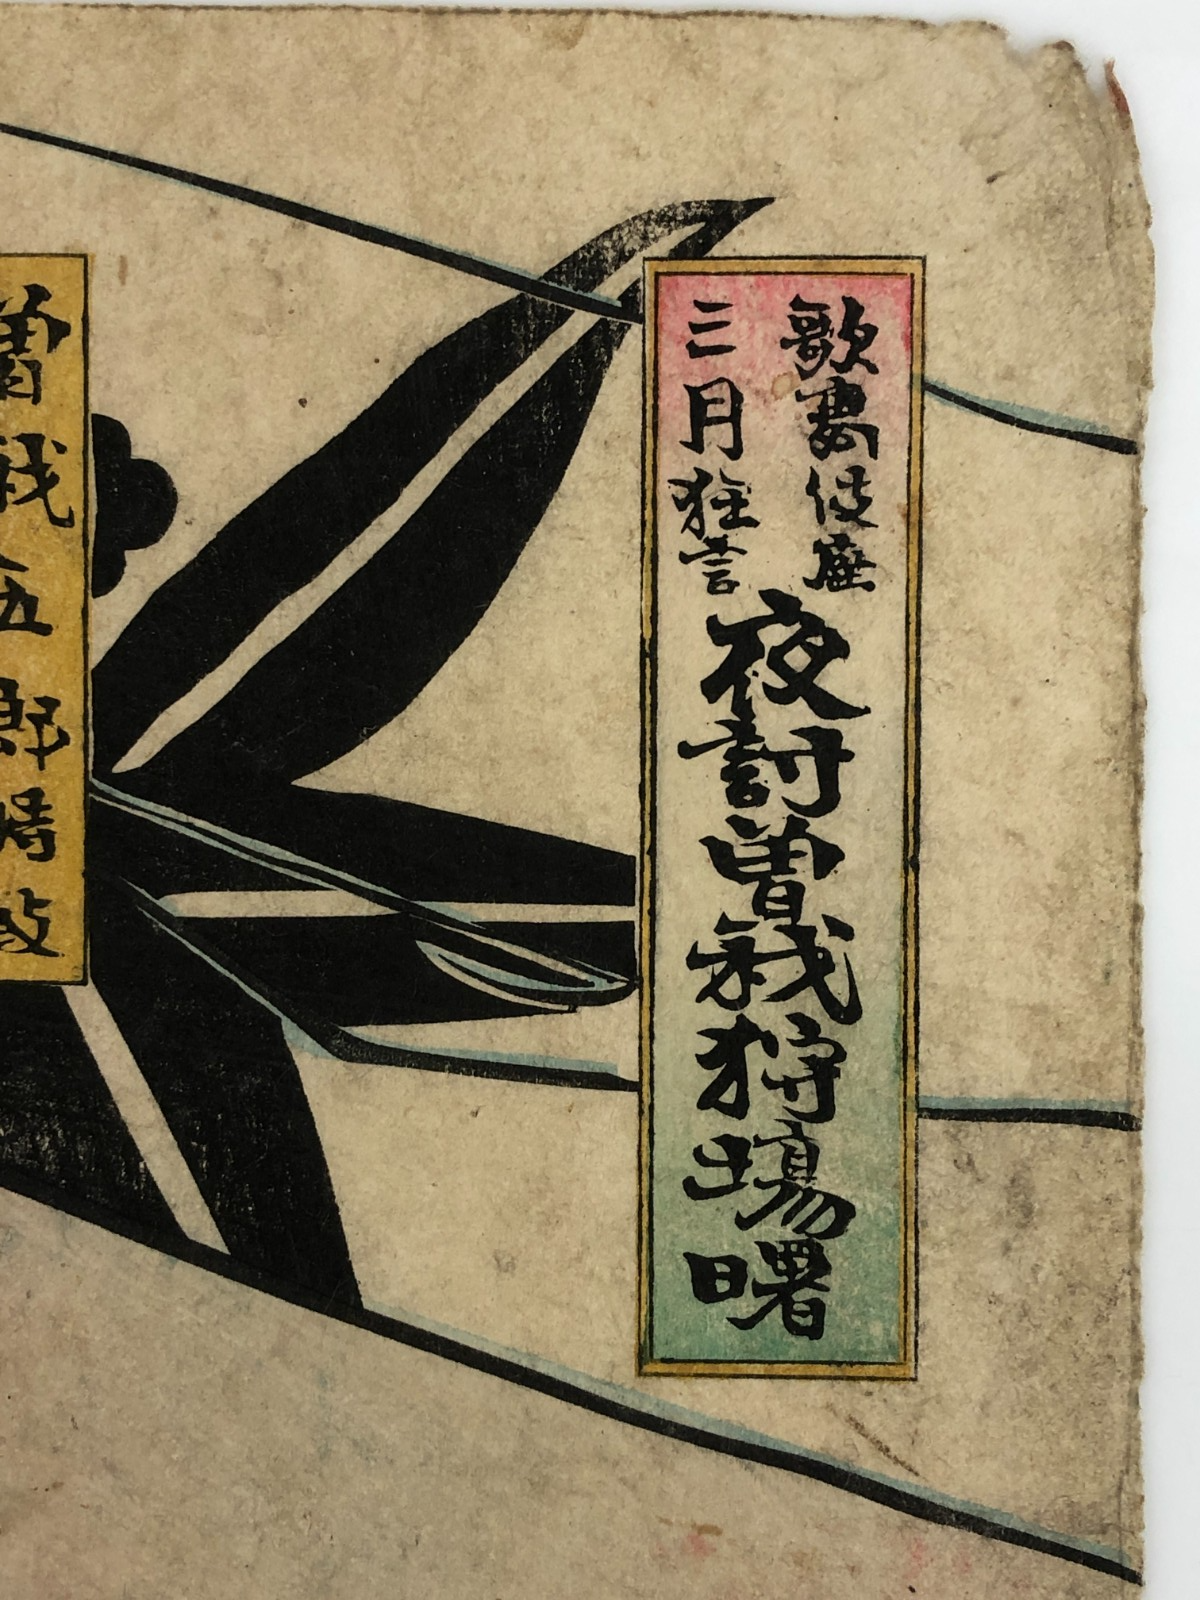 歌舞伎座
三月狂言
夜討曽我狩場曙
曽我五郎時致